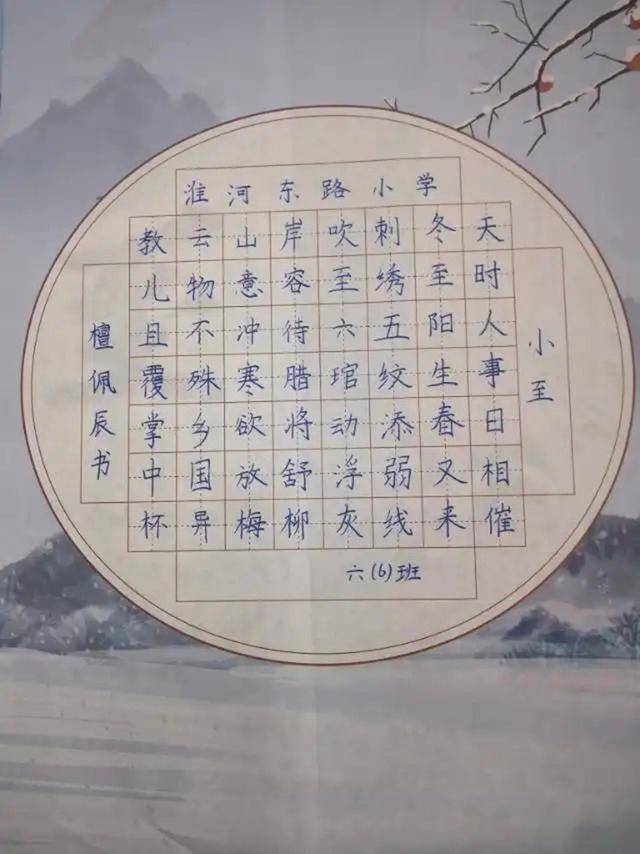 淮河东路小学
小至
天时人事日相催
冬至阳生春又来
刺绣五纹添弱线
吹至六琯动浮灰
岸容待腊将舒柳
山意冲寒欲放梅
云物不殊乡国异
教儿且覆掌中杯
檀佩辰书
六(6)班